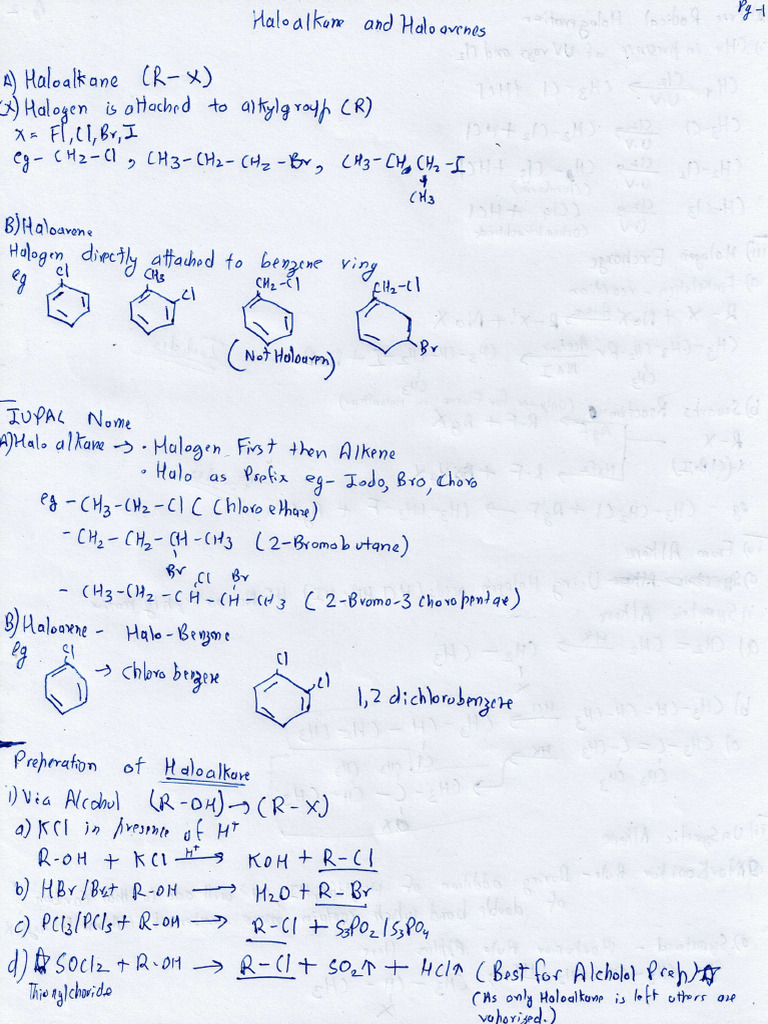 Pg-1
Haloalkane and Haloarenes
A) Haloalkane (R-X)
(X) Halogen is attached to alkylgroup (R)
X = Fl, Cl, Br, I
eg - CH2-Cl , CH3-CH2-CH2-Br , CH3-CH, CH2-I
CH3
B) Haloarene
Halogen directly attached to benzene ring
eg
Cl CH3 Cl CH2-Cl CH2-Cl
Br
(Not Haloaren)
IUPAL Nome
A) Halo alkane → • Halogen First then Alkene
• Halo as Prefix eg- Iodo, Bro, Choro
eg - CH3-CH2-Cl ( Chloro ethane)
- CH2-CH2-CH-CH3 (2-Bromobutane)
Br
Cl Br
- CH3-CH2-CH-CH-CH3 (2-Bromo-3 choropentae)
B) Haloarene - Halo-Benzene
eg
Cl → chloro benzene
Cl Cl 1,2 dichlorobenzene
Preperation of Haloalkane
i) Via Alcohol (R-OH) → (R-X)
a) KCl in presence of H+
R-OH + KCl H+→ KOH + R-Cl
b) HBr/Br2+ R-OH → H2O + R-Br
c) PCl3/PCl5 + R-OH → R-Cl + S3PO2/S3PO4
d) ☆ SOCl2 + R-OH → R-Cl + SO2↑ + HCl↑ (Best for Alcholol Prep)☆
Thionylchoride
(As only Haloalkane is left others are
vaporised.)